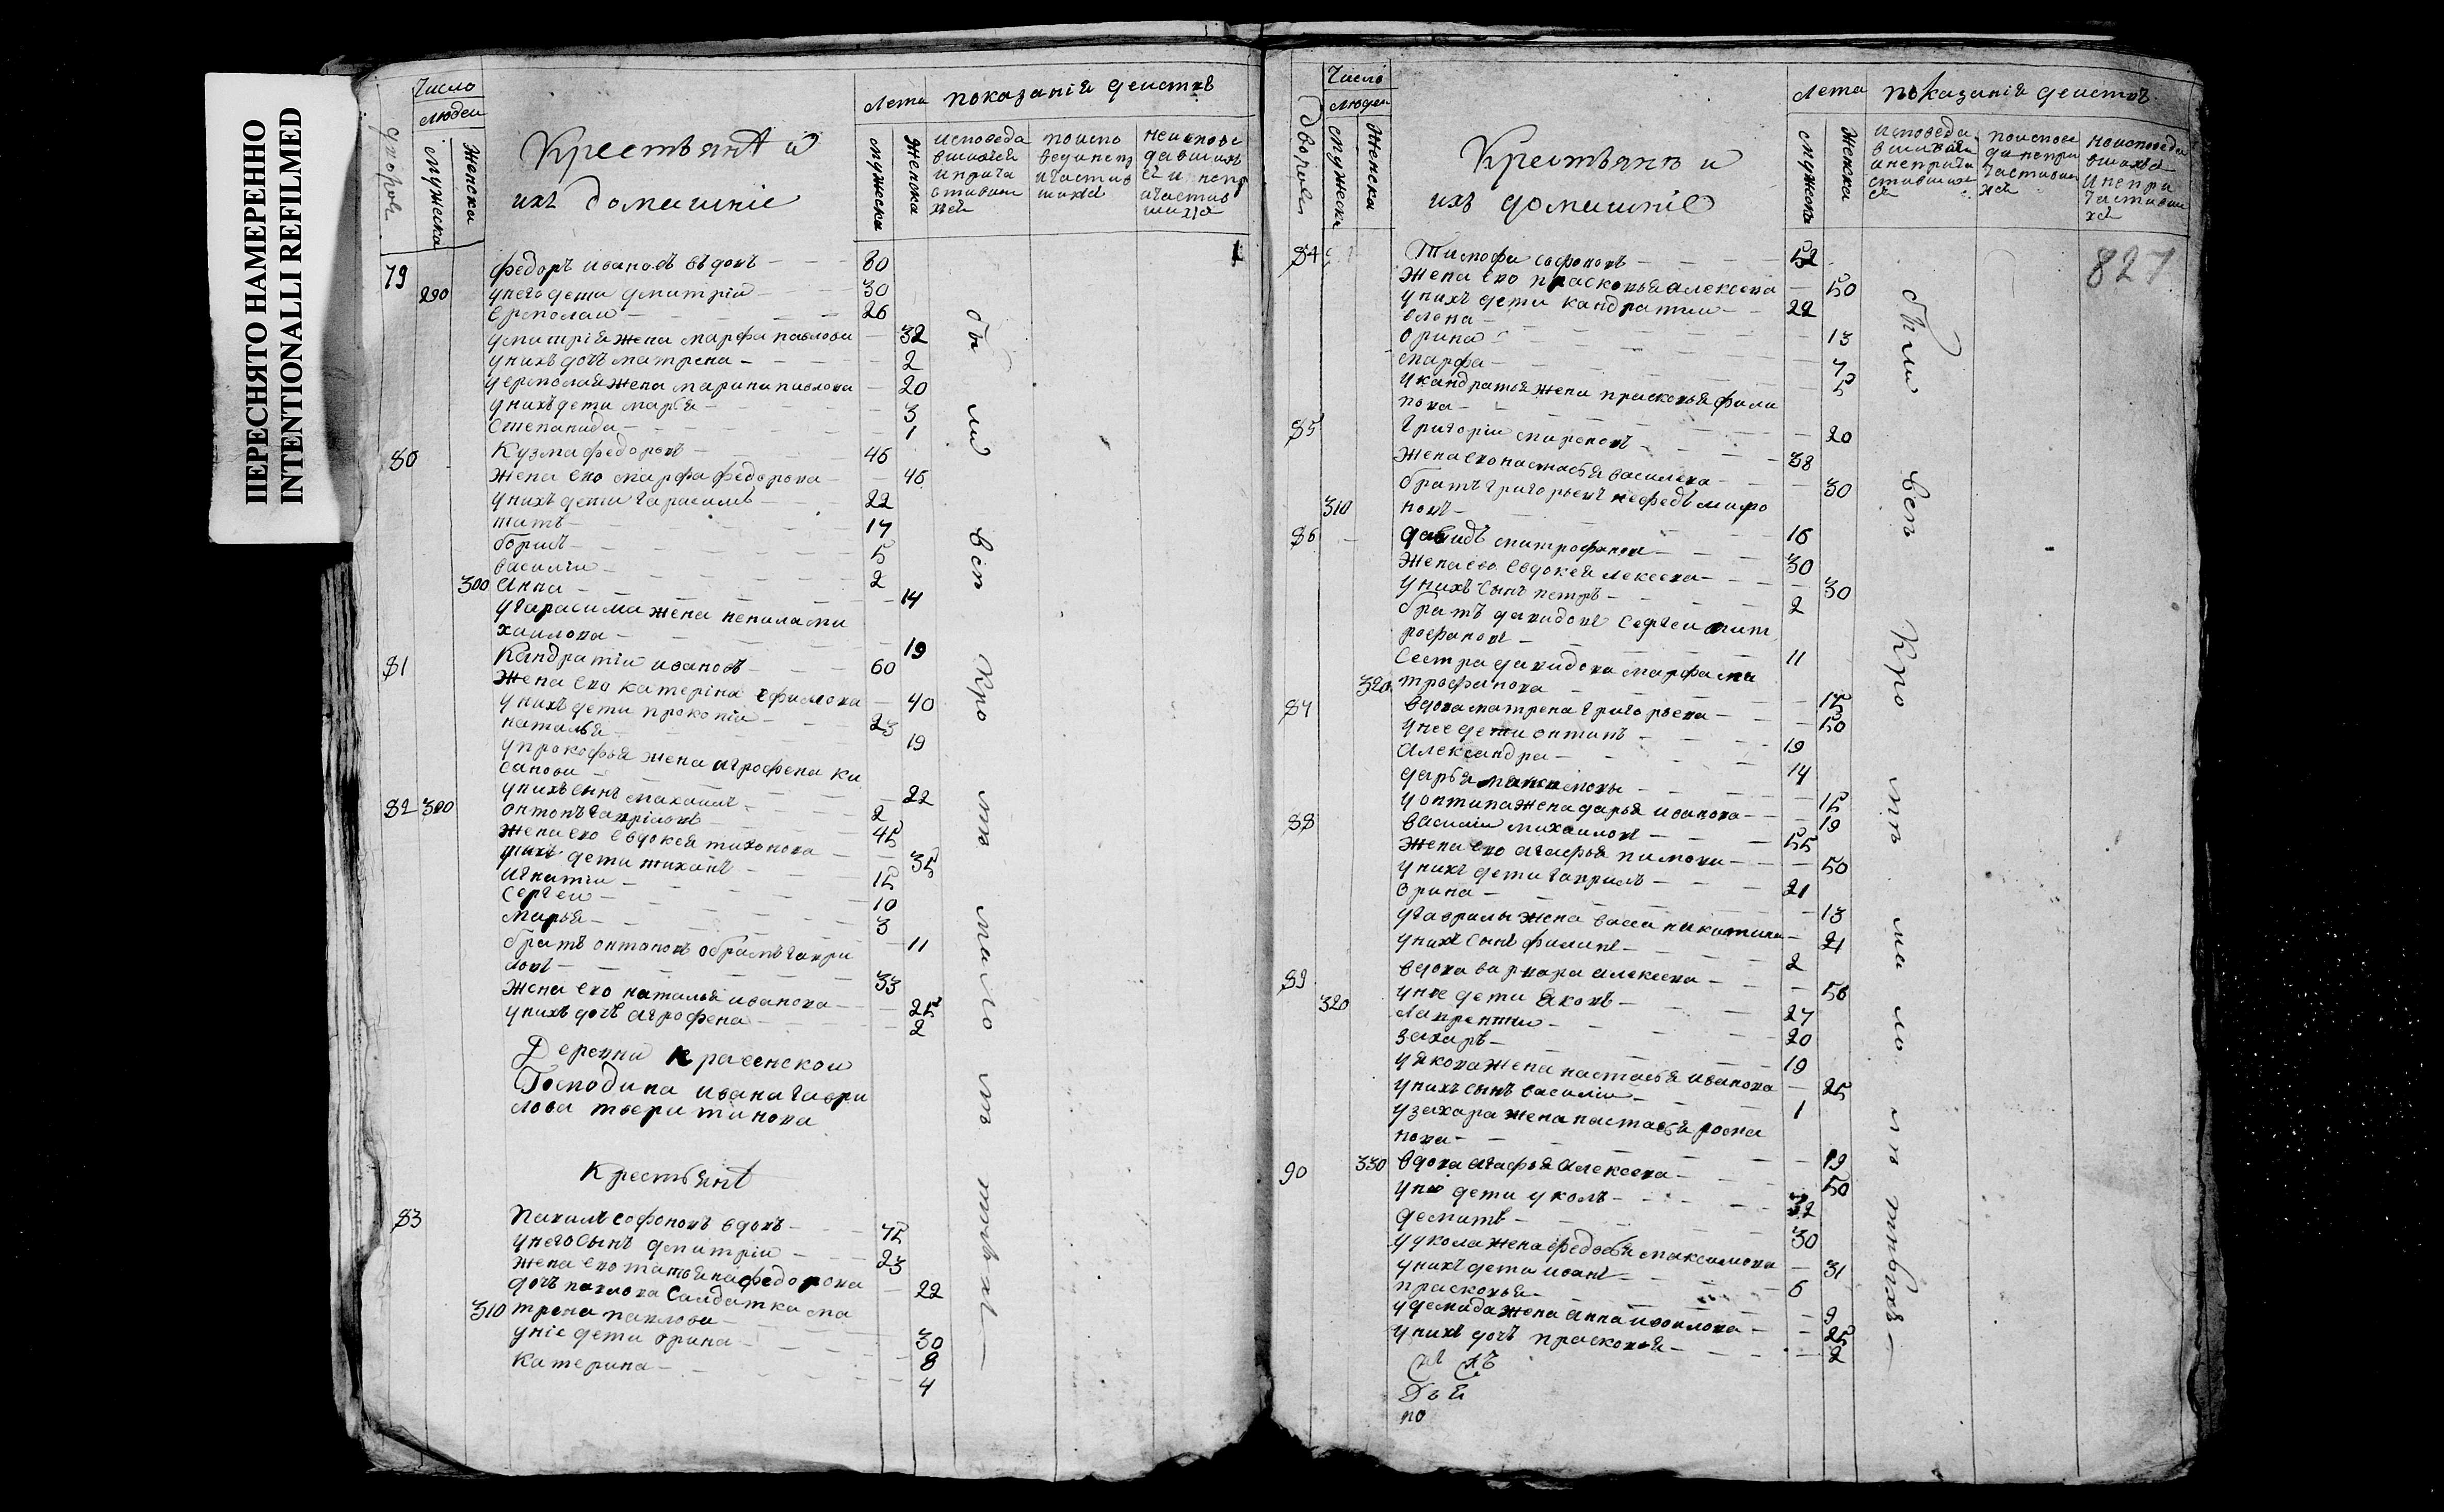 ПЕРЕСНЯТО НАМЕРЕННО
INTENTIONALLI REFILMED
Число
людеи
дворовъ
мужеска
женска
Крестьянѣ и
ихъ домашніе
Лета
мужеска
женска
показанія деистъ
исповеда
вшихся
и прича
стивши
хся
поиспо
веди непр
ичастив
шихся
неиспове
давшихъ
ся и непр
ичастив
шихся
79
290
федоръ ивановъ вдовъ 80
унего дети дмитріи 30
ермолаи 26
дмитрія жена марфа павлова 32
унихъ дочь матрена 2
уермолая жена марина павлова 20
унихъ дети марья 3
степанида 1
80 Кузма федоровъ 46
жена ево марфа федорова 46
унихъ дети гарасимъ 22
титъ 17
борисъ 5
василіи 2
300 Анна 14
угарасима жена ненила ми
хаилова 19
81 Кандратіи ивановъ 60
жена ево катеріна ефимова 40
унихъ дети прокопіи 23
наталья 19
упрокофья жена агрофена ка
санова 22
унихъ сынъ михаилъ 2
82 300 онтонъ гаврiловъ 45
жена ево евдокея тихонова 35
унихъ дети тиханъ 15
игнатіи 10
сергеи 3
марья 11
братъ онтоновъ обрамъ гаври
ловъ 33
жена ево наталья иванова 25
унихъ дочь агрофена 2
Деревни красенскои
Господина ивана гаври
лова тверитинова
Крестьянѣ
83 павилъ софоновъ вдовъ 75
унего сынъ дмитріи 23
жена ево татьяна федорова 22
дочь павлова салдатка ма
310 трена павлова 30
унiе дети орина 8
катерина 4
были все кро ме мало ле тныхъ
Число
людеи
дворовъ
мужеска
женска
Крестьянъ и
ихъ домашніе
Лета
мужеска
женска
показанія деистъ
исповеда
вшихся
и неприча
стивших
ся
поиспове
да непри
частивши
хся
неисповеда
вшихся
и непри
частивши
хся
827
84 Тимофеи софоновъ 52
жена ево прасковья алексеева 50
унихъ дети кандратіи 22
елена 13
орина 7
марфа 5
укандратья жена прасковья фили
пова 20
85 Григории мироновъ 38
жена ево настасья васильева 30
310 братъ григорьевъ нефедъ миро
новъ 16
86 давидъ митрофановъ 30
жена ево евдокея алексеева 30
унихъ сынъ петръ 2
братъ давидовъ сергеи мит
рофановъ 11
сестра давидова марфа ми
320 трофанова 15
87 вдова матрена григорьева 50
унее дети онтипъ 19
александра 14
дарья максимовы 15
уонтипа жена дарья иванова 19
88 василии михаиловъ 55
жена ево агафья пимова 50
унихъ дети гаврилъ 21
орина 13
угаврилы жена васса никитина 21
унихъ сынъ филипъ 2
89 вдова варвара алексеева 56
320 унее дети яковъ 27
лаврентии 20
захаръ 19
уякова жена настасья иванова 25
унихъ сынъ василіи 1
узахара жена настасья рома
нова 19
90 330 вдова агафья алексеева 50
унее дети уколъ 32
демитъ 30
уукола жена федосья максимова 31
унихъ дети иванъ 6
прасковья 9
удемида жена анна иванлова 25
унихъ дочь прасковья 2
по
были все кро ме ма ло ле тныхъ